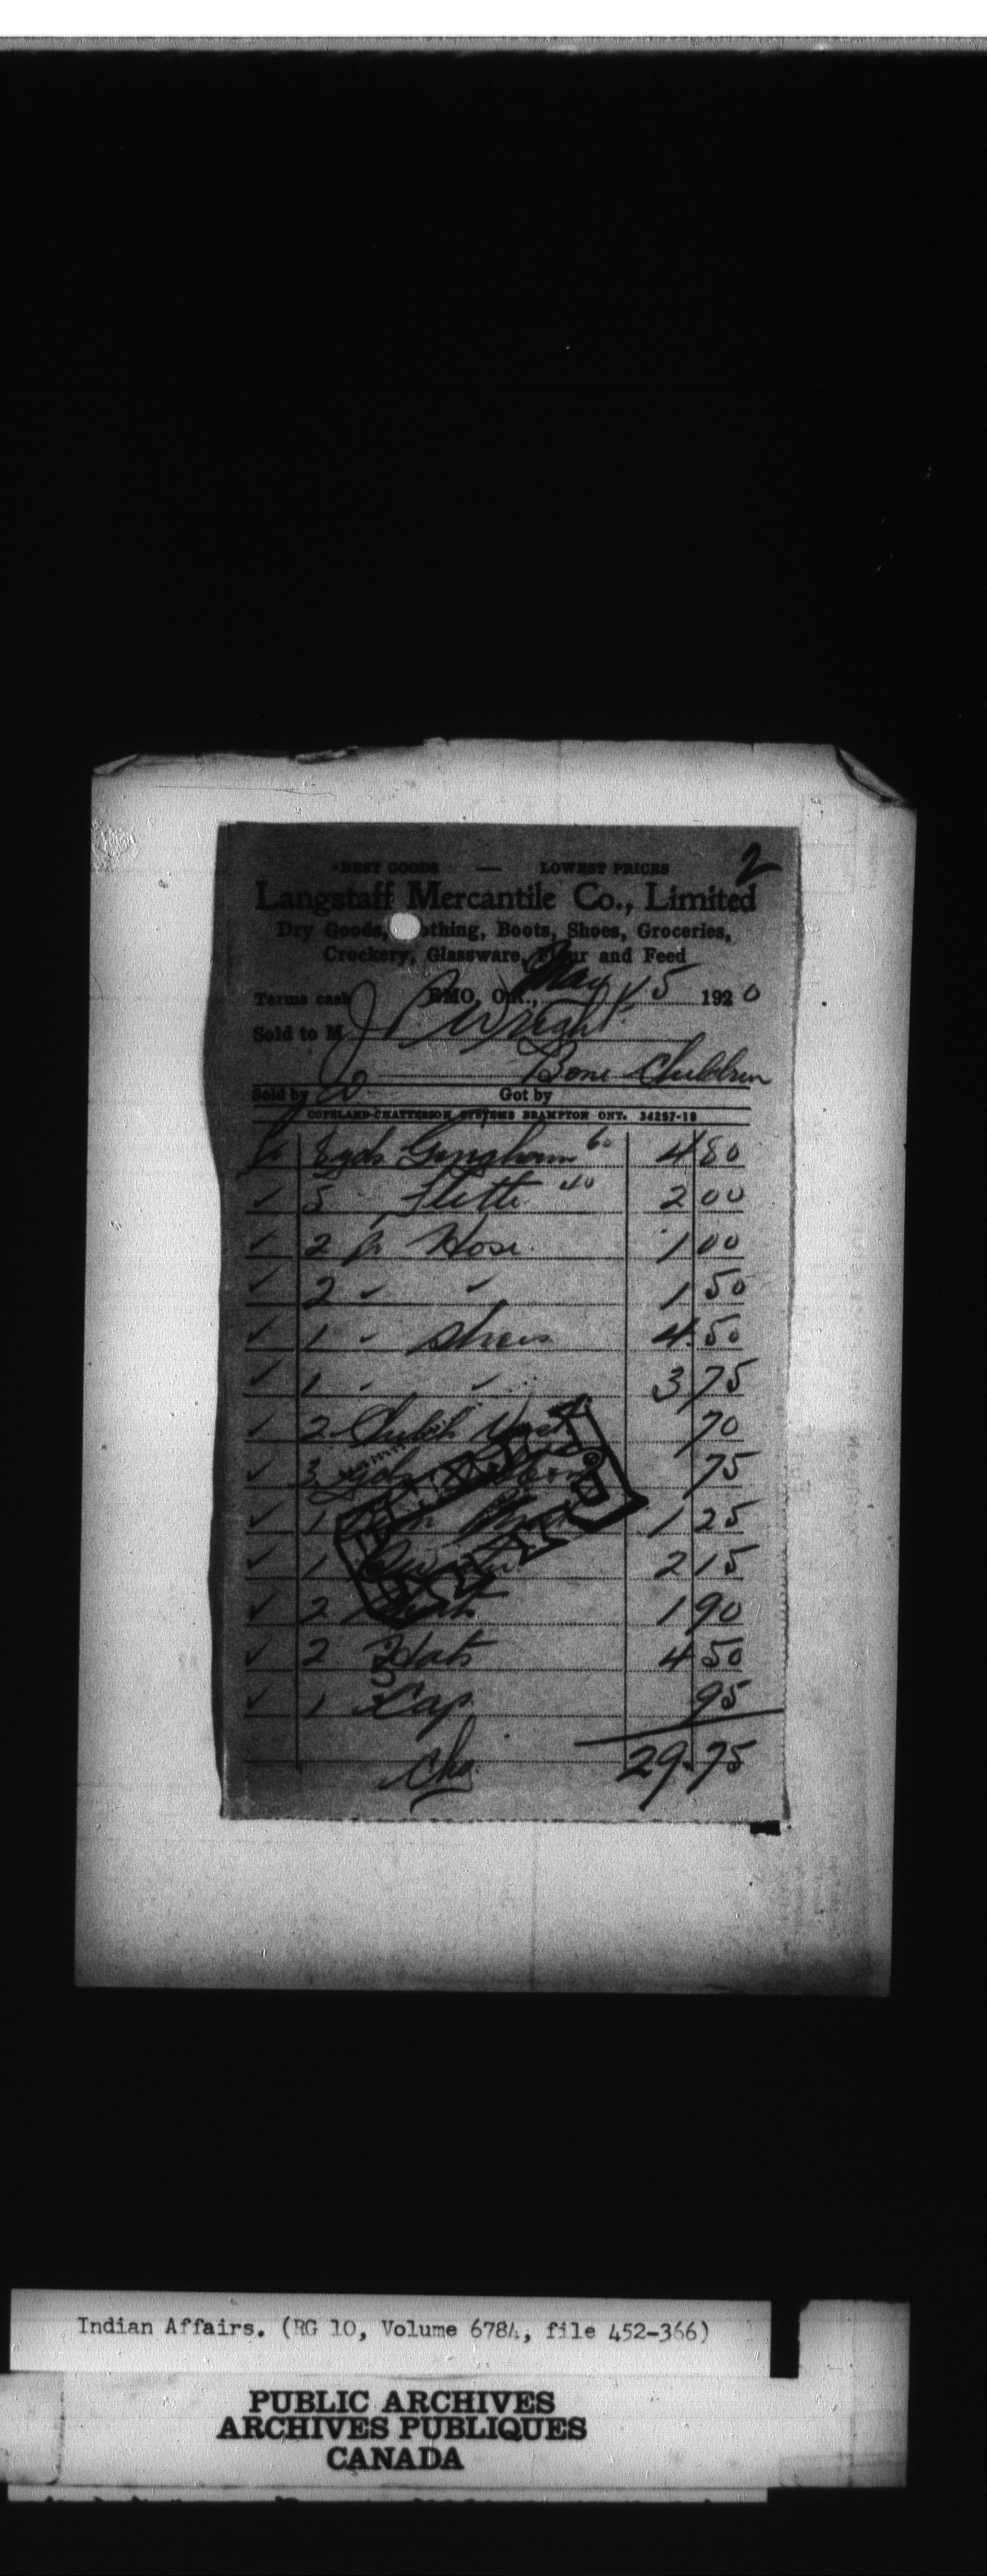 2
BEST GOODS — LOWEST PRICES
Langstaff Mercantile Co., Limited
Dry Goods, othing, Boots, Shoes, Groceries,
Crockery, Glassware, Flour and Feed
Terms cash EMO, ONT., May 15 1920
Sold to M J P Wright
Bone Children
Sold by W Got by
COPELAND-CHATTERSON SYSTEMS BRAMPTON ONT. 34257-19
8 yds Gingham 60 4 80
✓ 5 " Flette 40 2 00
✓ 2 pr Hose 1 00
✓ 2 " " 1 50
✓ 1 " Shoes 4.50
✓ 1 " " 3 75
✓ 2 70
✓ 3 yds 75
✓ 1 1 25
✓ 1 2 15
✓ 2 1 90
✓ 2 Hats 4 50
✓ 1 Cap 95
Chg 29.75
Indian Affairs. (RG 10, Volume 6784, file 452-366)
PUBLIC ARCHIVES
ARCHIVES PUBLIQUES
CANADA